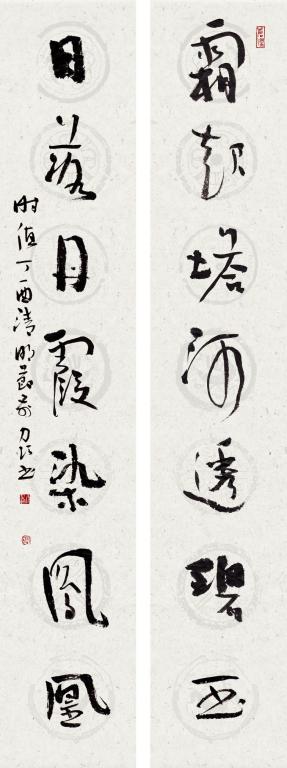 霜起塔河透碧玉
日落丹霞染鳳凰
时值丁酉清明节前力